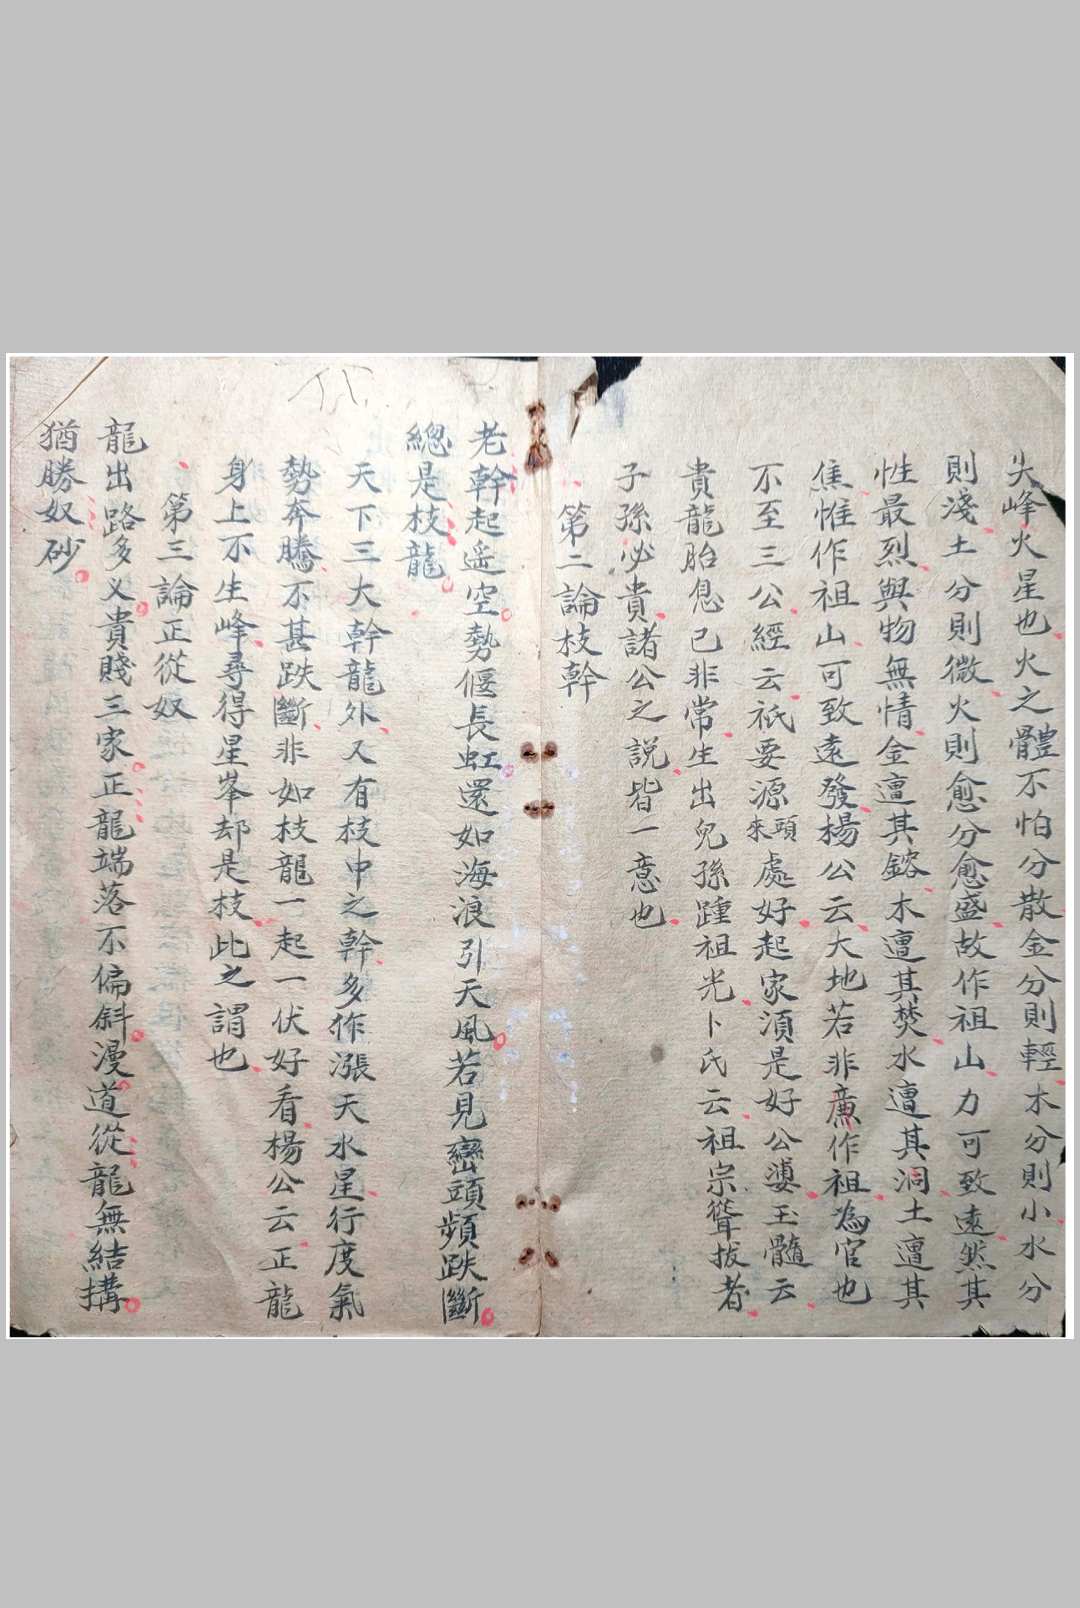 尖峰火星也火之體不怕分散金分則輕木分則小水分
則淺土分則微火則愈分愈盛故作祖山力可致遠然其
性最烈與物無情金遭其鎔木遭其焚水遭其涸土遭其
焦惟作祖山可致遠發楊公云大地若非廉作祖為官也
不至三公經云祇要源頭來處好起家須是好公婆玉髓云
貴龍胎息已非常生出兒孫踵祖光卜氏云祖宗聳拔者
子孫必貴諸公之說皆一意也
第二論枝幹
老幹起遥空勢偃長虹還如海浪引天風若見巒頭頻跌斷
總是枝龍
天下三大幹龍外又有枝中之幹多作漲天水星行度氣
勢奔騰不甚跌斷非如枝龍一起一伏好看楊公云正龍
身上不生峰尋得星峯却是枝此之謂也
第三論正從奴
龍出路多义貴賤三家正龍端落不偏斜漫道從龍無結搆
猶勝奴砂